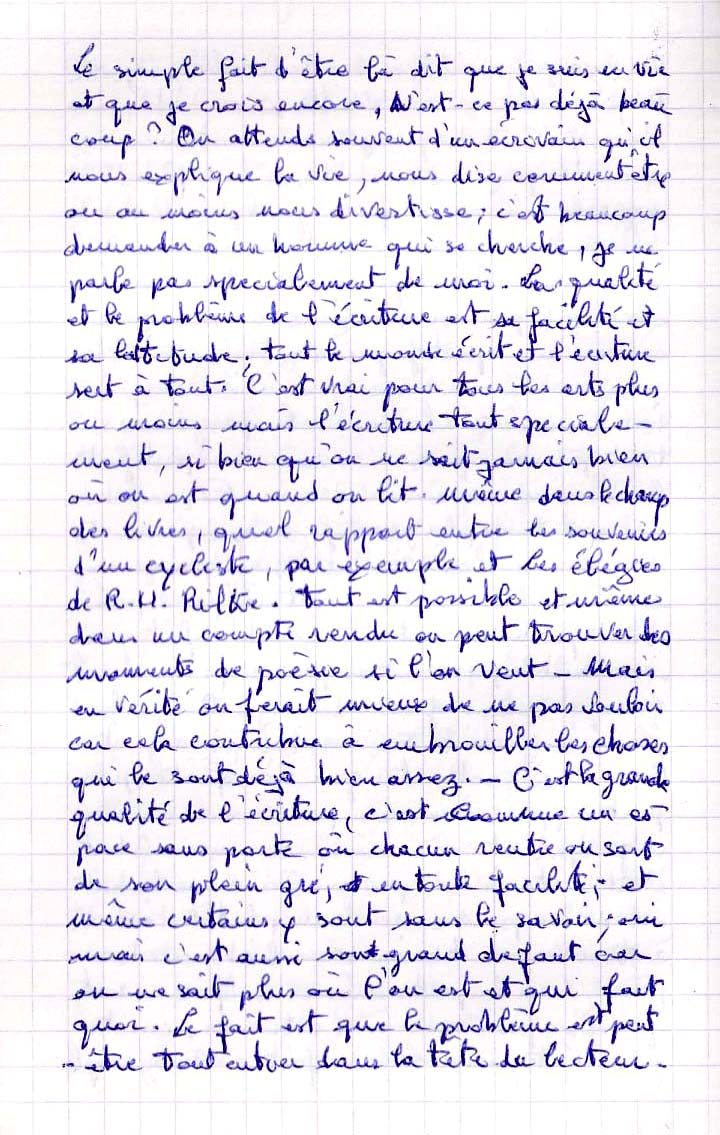 Le simple fait d'être là dit que je suis en vie
et que je crois encore, N'est-ce pas déjà beau
coup ? On attends souvent d'un écrivain qu'il
nous explique la vie, nous dise comment être
ou au moins nous divertisse ; c'est beaucoup
demander à un homme qui se cherche, je ne
parle pas specialement de moi. La qualité
et le problème de l'écriture est sa facilité et
sa latitude ; tout le monde écrit et l'écriture
sert à tout. C'est vrai pour tous les arts plus
ou moins mais l'écriture tout speciale-
ment, si bien qu'on ne sait jamais bien
où on est quand on lit. même dans le champ
des livres, quel rapport entre les souvenirs
d'un cycliste, par exemple et les élégies
de R.M. Rilke. tout est possible et même
dans un compte rendu on peut trouver des
moments de poèsie si l'on veut - Mais
en vérité on ferait mieux de ne pas vouloir
car cela contribue à embrouiller les choses
qui le sont déjà bien assez. - C'est la grande
qualité de l'écriture, c'est comme un es
pace sans porte où chacun rentre ou sort
de son plein gré, en toute facilité ; et
même certains y sont sans le savoir ; oui
mais c'est aussi son grand defaut car
on ne sait plus où l'on est et qui fait
quoi. Le fait est que le problème est peut
-être tout entier dans la tête du lecteur.